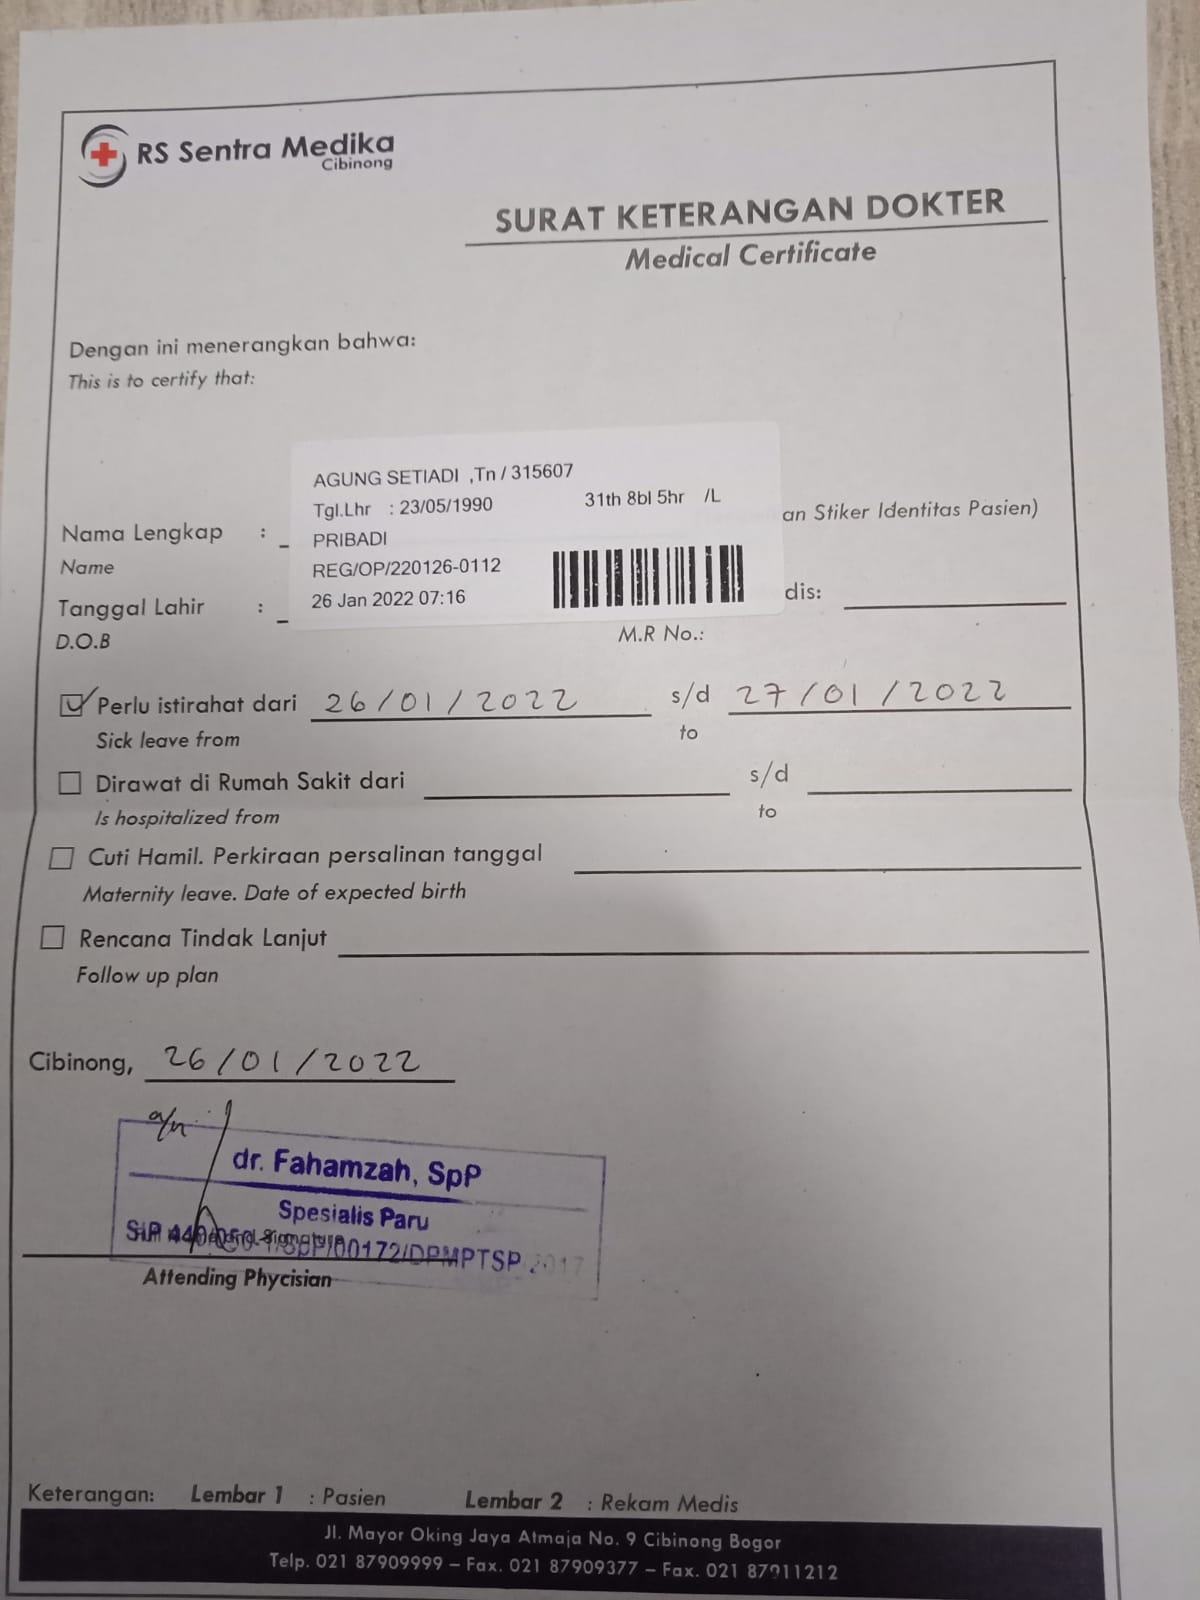 RS Sentra Medika
Cibinong
SURAT KETERANGAN DOKTER
Medical Certificate
Dengan ini menerangkan bahwa:
This is to certify that:
AGUNG SETIADI ,Tn / 315607
Tgl.Lhr : 23/05/1990 31th 8bl 5hr /L
PRIBADI
REG/OP/220126-0112
26 Jan 2022 07:16
an Stiker Identitas Pasien)
Nama Lengkap :
Name
Tanggal Lahir : dis:
D.O.B M.R No.:
Perlu istirahat dari 26/01/2022 s/d 27/01/2022
Sick leave from to
Dirawat di Rumah Sakit dari s/d
Is hospitalized from to
Cuti Hamil. Perkiraan persalinan tanggal
Maternity leave. Date of expected birth
Rencana Tindak Lanjut
Follow up plan
Cibinong, 26/01/2022
a/n
dr. Fahamzah, SpP
Spesialis Paru
SIP /00172/DPMPTSP 2017
Attending Phycisian
Keterangan: Lembar 1 : Pasien Lembar 2 : Rekam Medis
Jl. Mayor Oking Jaya Atmaja No. 9 Cibinong Bogor
Telp. 021 87909999 – Fax. 021 87909377 – Fax. 021 87911212